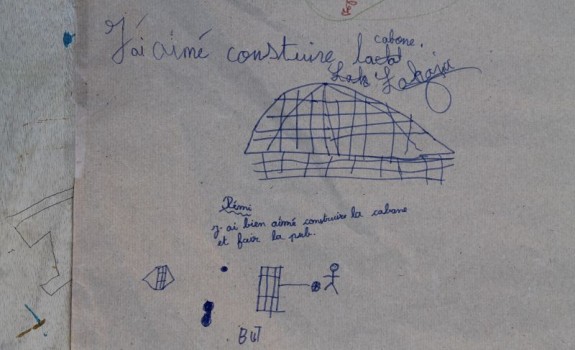 J'ai aimé constuire la cabone.
Rémi
j'ai bien aimé construire la cabane
et fair la pub..
BUT